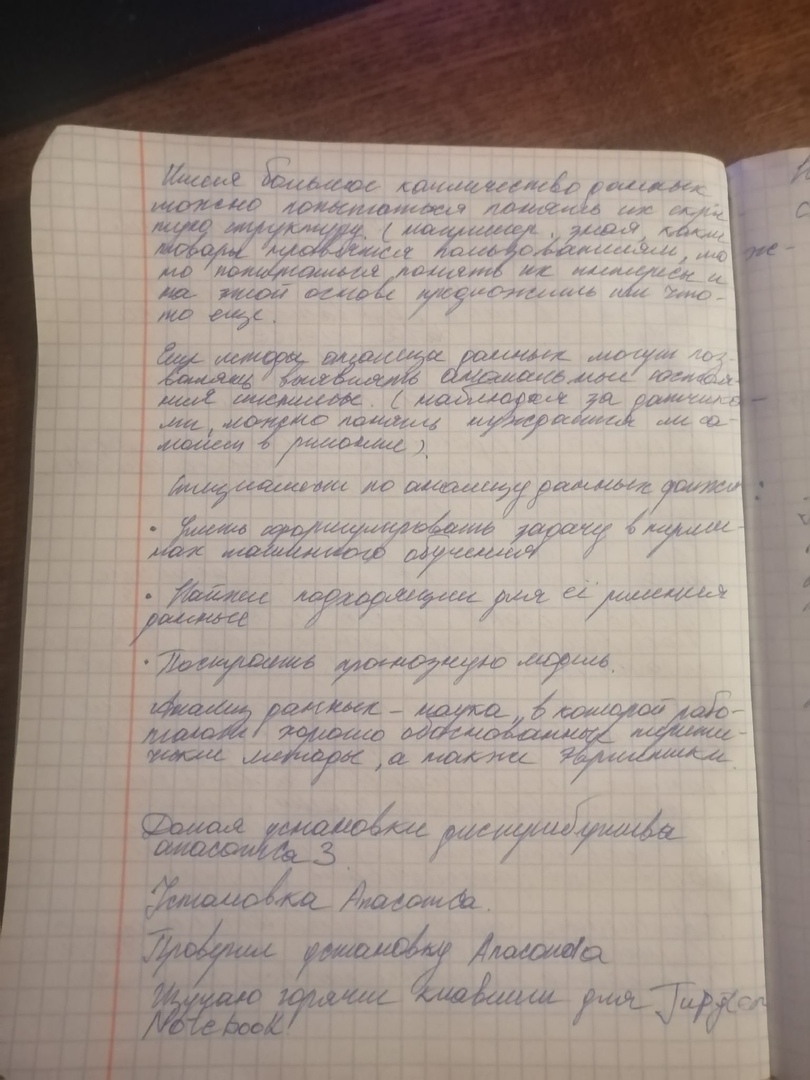 Имея большое колличество данных
можно попытаться понять их скры
тую структуру. (например, зная, какие
товары нравятся пользователям, мо
но попытаться понять их интересы и
на этой основе предложить им что-
то еще.
Еще методы анализа данных могут поз-
волять выявлять аномальные состоя-
ния системы. (наблюдая за датчика-
ми, можно понять нуждается ли са-
молет в ремонте).
Специалист по анализу данных должен:
• Уметь сформулировать задачу в терми-
нах машинного обучения
• Найти подходящии для её решения
данные
• Построить прогнозную модель.
Анализ данных - наука, в которой рабо-
тают хорошо обоснованные теорети-
ческие методы, а также эвристики.
установки дистрибутива
anaconda 3
Установка Anaconda.
Проверил установку Anaconda
Изучаю горячие клавиши для Jupyter
Notebook